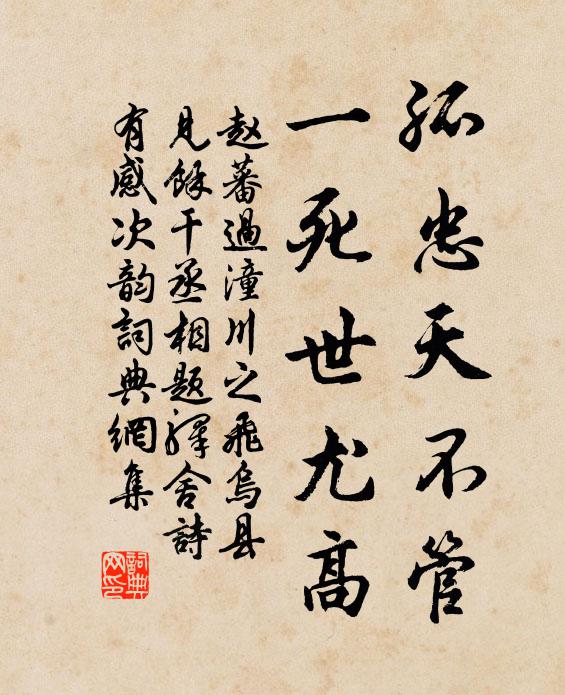 孤忠天不管
一死世尤高
赵蕃過潼川之飛烏县
見餘干丞相题驛舍詩
有感次韵詞典網集
詞典
网印